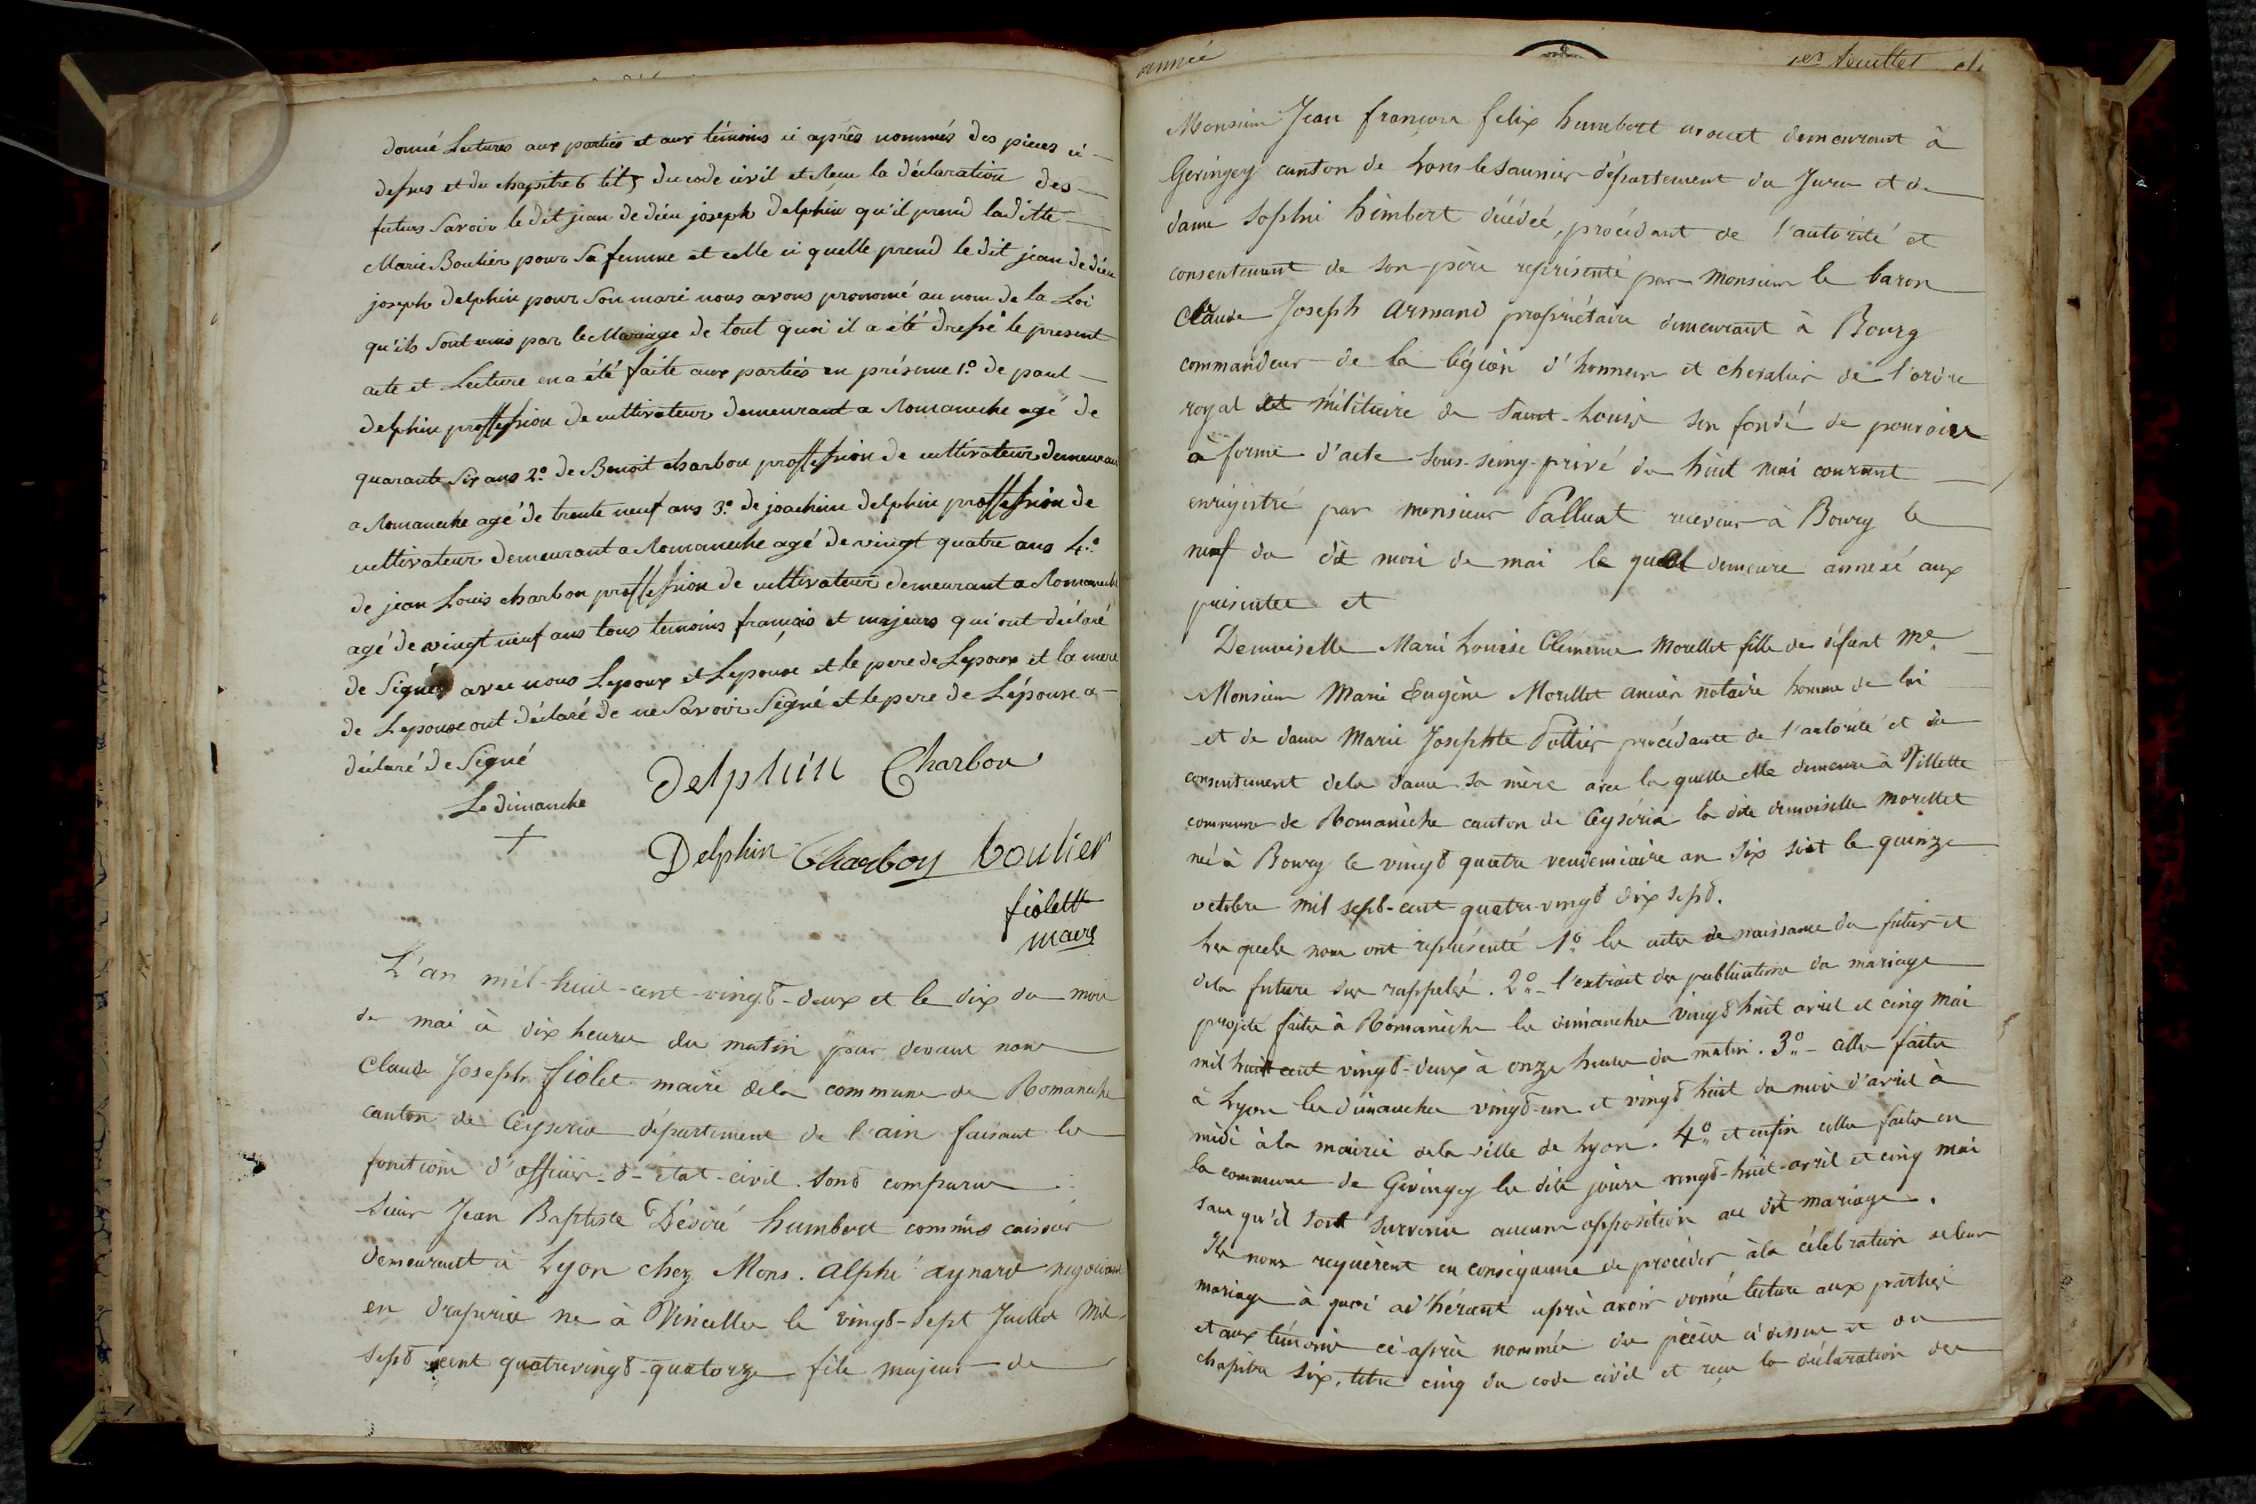 donné Lectures aux parties et aux témoins ci après nommés des pieces ci
dessus et du chapitre 6 tit 5 du code civil et Recu la déclaration des
futurs Savoir le dit jean de dieu joseph delphin qu'il prend laditte
Marie Boulier pour Sa femme et celle ci quelle prend le dit jean de dieu
joseph delphin pour Son mari nous avons prononcé au nom de la Loi
qu'ils Sont unis par le Mariage de tout quoi il a été dressé le present
acte et Lecture en a été faite aux parties en présence 1.o de paul
delphin proffession de cultivateur demeurant a Romaneche agé de
quarante Six ans 2.o de Benoit charbon proffession de cultivateur demeurant
a Romaneche agé de trente neuf ans 3.o de joachim delphin proffession de
cultivateur demeurant a Romaneche agé de vingt quatre ans 4.o
de jean Louis charbon proffession de cultivateur demeurant a Romaneche
agé de vingt neuf ans tous temoins français et majeurs qui ont déclaré
de Signér avec nous Lepoux et Lepouse et le pere de Lepoux et la mere
de Lepouse ont déclaré de ne Savoir Signé et le pere de Lépouse a
déclaré de Signé
Le dimanche
Delphin Charbon
Delphin Charbon boulier
fiolett
maire
L'an mil-huit-cent-vingt-deux et le dix du mois
de mai à dix heures du matin par devant nous
Claude Joseph fiolet maire dela commune de Romaneche
canton de Ceyseria département de l'ain faisant les
fonctions d'officier-d-état-civil. Sont comparus
Sieur Jean Baptiste Désiré humbert commis caissier
demeurant à Lyon chez Mons. alphé aynard negociant
en draperies ne à Vincelles le vingt-sept Juillet Mil
sept cent quatrevingt-quatorze fils majeur de
année
1er feuillet
Monsieur Jean francois felix humbert avouet demeurant à
Geringey canton de Lons-le-Saunier département du Jura et de
dame Sophie himbert décédée, procédant de l'autorité et
consentement de son père représenté par monsieur le baron
Claude Joseph armand propriétaire demeurant à Bourg
commandeur de la légion d'honneur et chevalier de l'ordre
royal et militaire de Saint-Louis son fondé de pouvoirs
a forme d'acte sous-seing-privé du huit mai courant
enrigistré par monsieur Palluat receveur à Bourg le
neuf du dit mois de mai le quel demeure annexé aux
présentes et
Demoiselle Marie Louise Clemence Morellet fille de défunt Me
Monsieur Marie Eugène Morellet ancien notaire homme de loi
et de dame Marie Josephte Pottier procédante de l'autorité et du
consentement dela dame sa mère avec la quelle elle demeure à Villette
commune de Romanèche canton de Ceyséria la dite demoiselle Morellet
née à Bourg le vingt quatre vendemiaire an Six soit le quinze
octobre mil sept-cent-quatre-vingt dix sept.
Les quels nous ont représenté 1o les actes de naissance du futur et
dela future sus rappelés. 2o l'extrait des publications du mariage
projeté faites à Romanèche les dimanches vingt huit avril et cinq mai
mil huit cent vingt-deux à onze heures du matin. 3o celles faites
à Lyon les dimanches vingt-un et vingt huit du mois d'avril à
midi à la mairie dela ville de Lyon. 4o et enfin celles faites en
la commune de Geringey les dits jours vingt-huit-avril et cinq mai
sans qu'il soit survenu aucune opposition au dit mariage.
Ils nous requièrent en conséquence de procéder à la célébration de leur
mariage à quoi ad'hérant après avoir donné lecture aux parties
et aux témoins ci-après nommés des pièces ci dessus et du
chapitre six, titre cinq du code civil et reçu la déclaration des